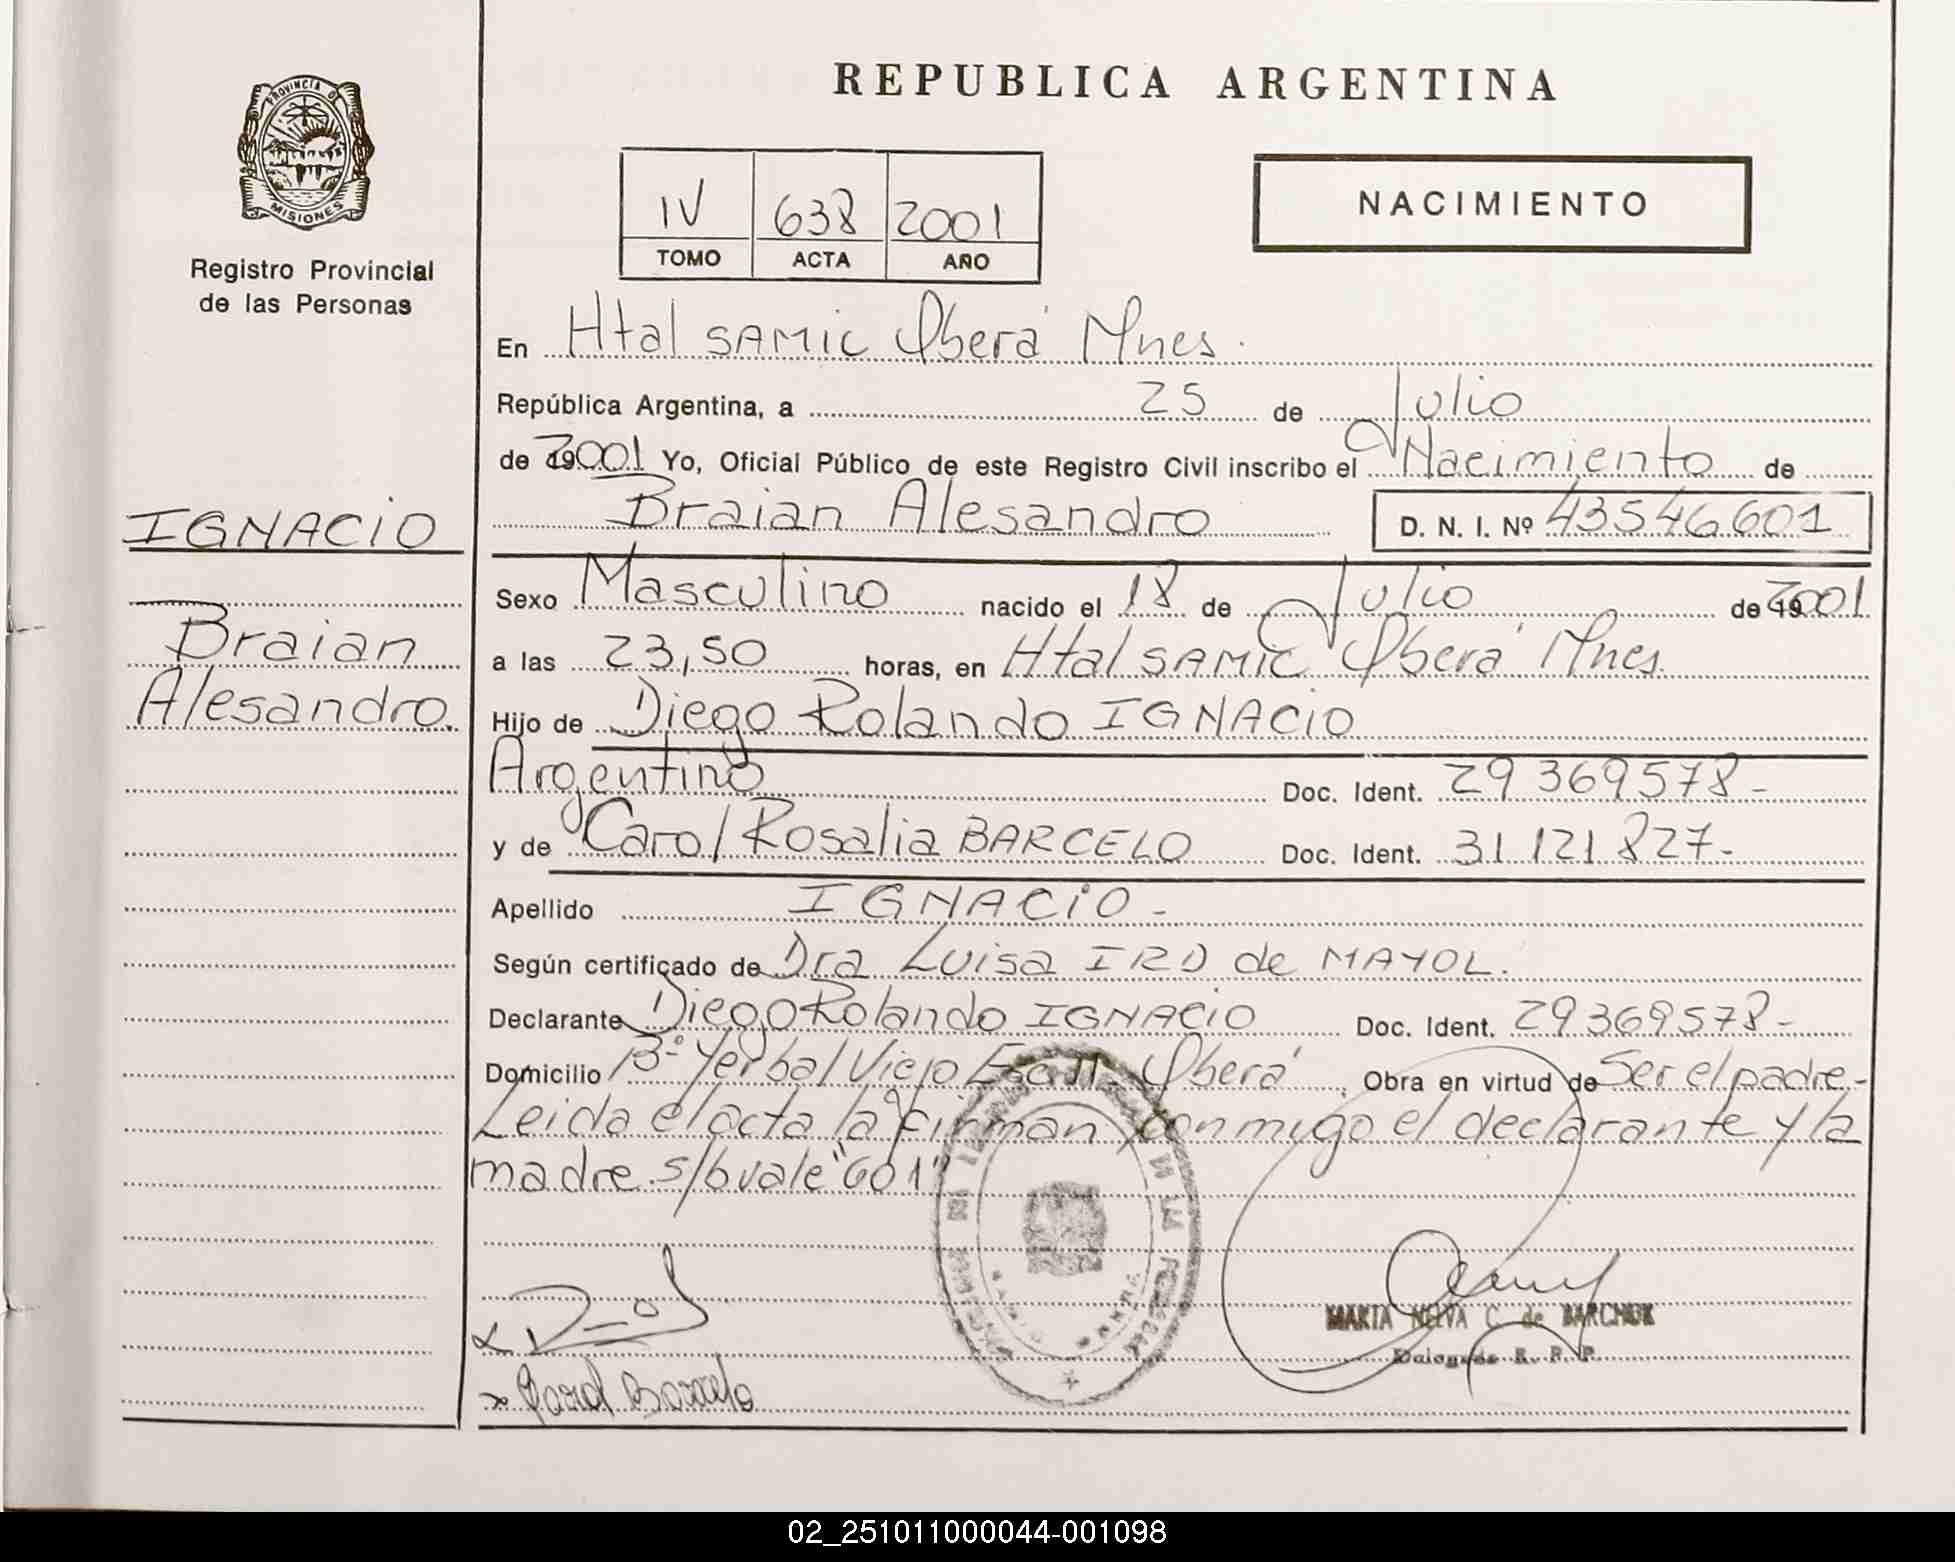 REPUBLICA ARGENTINA
PROVINCIA DE
MISIONES
Registro Provincial
de las Personas
IV 638 2001
TOMO ACTA AÑO
NACIMIENTO
En Htal SAMIC Oberá Mnes.
República Argentina, a 25 de Julio
de 2001 Yo, Oficial Público de este Registro Civil inscribo el Nacimiento de
Braian Alesandro D. N. I. Nº 43546601
IGNACIO
Braian
Alesandro.
Sexo Masculino nacido el 18 de Julio de 2001
a las 23,50 horas, en Htal SAMIC Oberá Mnes.
Hijo de Diego Rolando IGNACIO
Argentino Doc. Ident. 29 369578-
y de Carol Rosalia BARCELO Doc. Ident. 31 121 827-
Apellido IGNACIO-
Según certificado de Dra Luisa IRD de MAYOL.
Declarante Diego Rolando IGNACIO Doc. Ident. 29 369578-
Domicilio Bº Yerbal Viejo Oberá, Obra en virtud de Ser el padre-
Leida el acta la firman conmigo el declarante y la
madre. s/b vale "601"
MARTA NELVA C. de BARCHUK
Delegada R. P. P.
Carol Barcelo
02_251011000044-001098